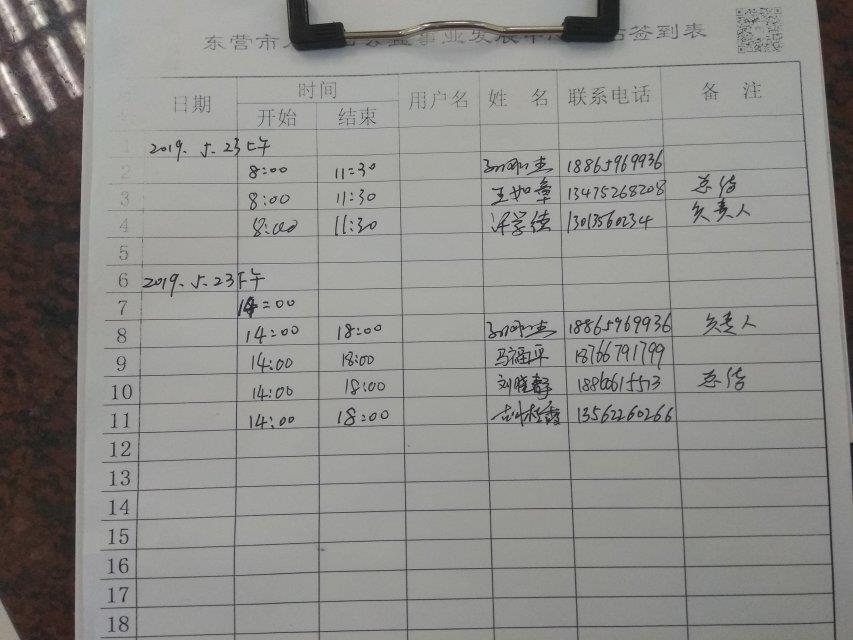 东营市 公益事业发展中 签到表
日期 时间 用户名 姓 名 联系电话 备 注
开始 结束
1 2019.5.23上午
2 8:00 11:30 18865969936
3 8:00 11:30 王如章 13475268208 总结
4 8:00 11:30 许学德 13013560234 负责人
5
6 2019.5.23下午
7 14:00
8 14:00 18:00 18865969936 负责人
9 14:00 18:00 马福平 18766791799
10 14:00 18:00 刘晓静 总结
11 14:00 18:00 13562260266
12
13
14
15
16
17
18